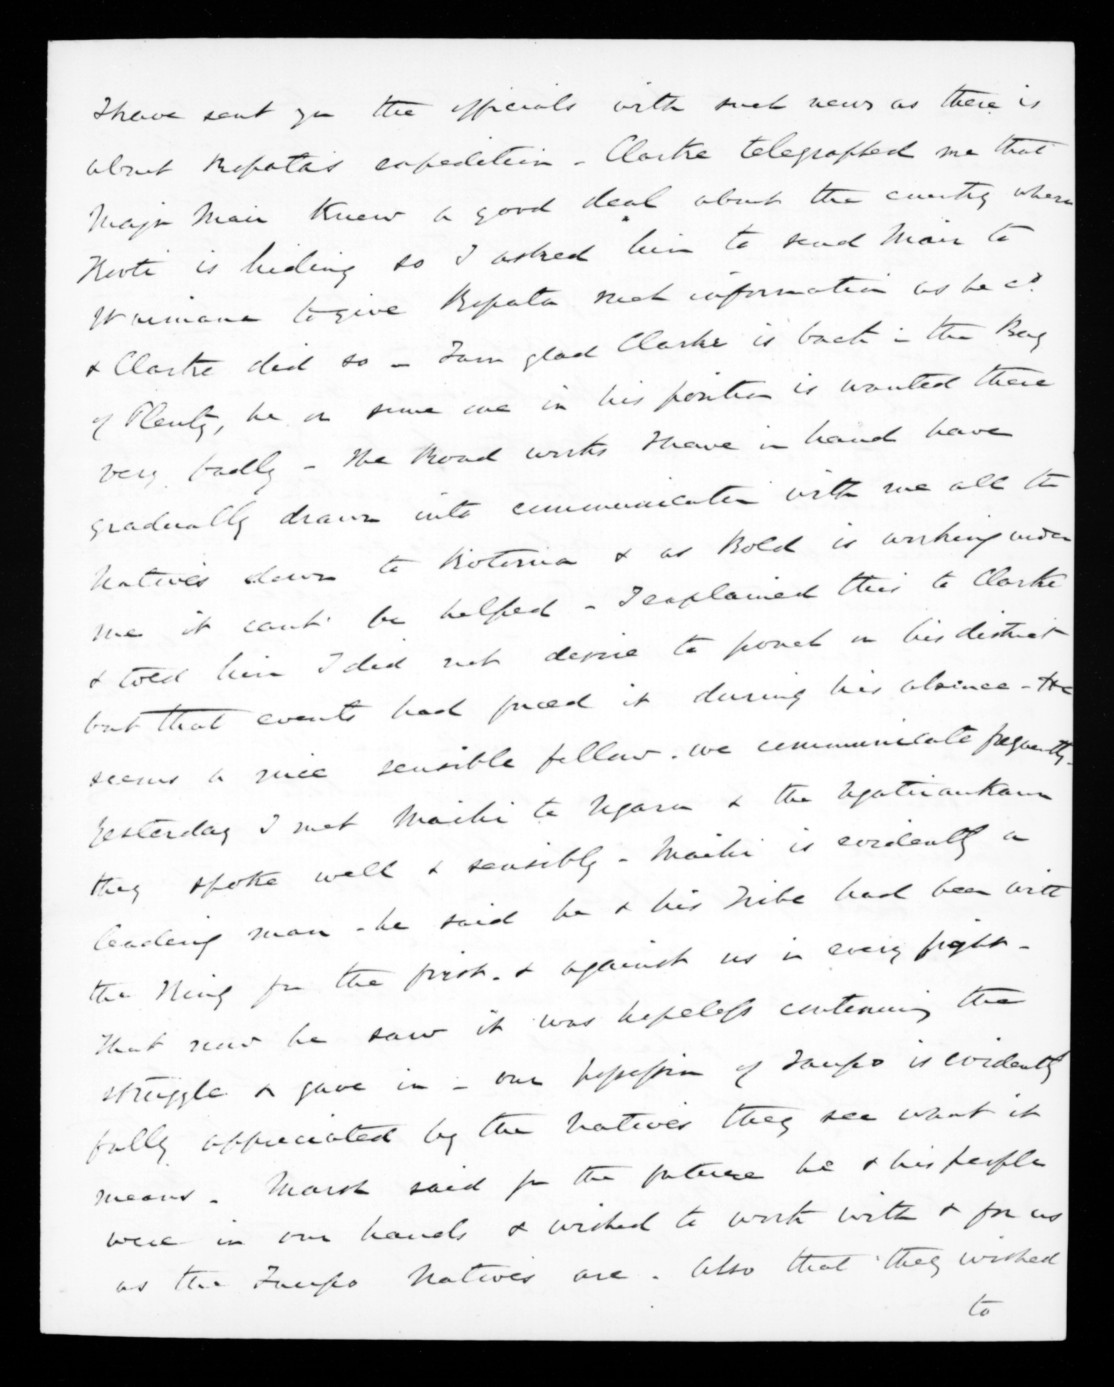 I have sent you the officials with such news as there is
about Ropata's expedition - Clarke telegraphed me that
Major Mair knew a good deal about the country where
Kooti is hiding so I asked him to send Mair to
Waimana to give Ropata such information as he cd
& Clarke did so - I am glad Clarke is back in the Bay
of Plenty, he or some one in his position is wanted there
very badly - The Road works I have in hand have
gradually drawn into communication with me all the
Natives down to Rotorua & as Bold is working under
me it cant be helped - I explained this to Clarke
& told him I did not desire to poach on his district
but that events had forced it during his absence - He
seems a nice sensible fellow. we communicate frequently.
Yesterday I met Maihi te Ngaru & the Ngatiraukawa
they spoke well & sensibly - Maihi is evidently a
leading man - he said he & his Tribe had been with
the King from the first. & against us in every fight -
That now he saw it was hopeless continuing the
struggle & gave in - our possession of Taupo is evidently
fully appreciated by the Natives they see what it
means - Marsh said for the future he & his people
were in our hands & wished to work with & for us
as the Taupo Natives are. Also that they wished
to